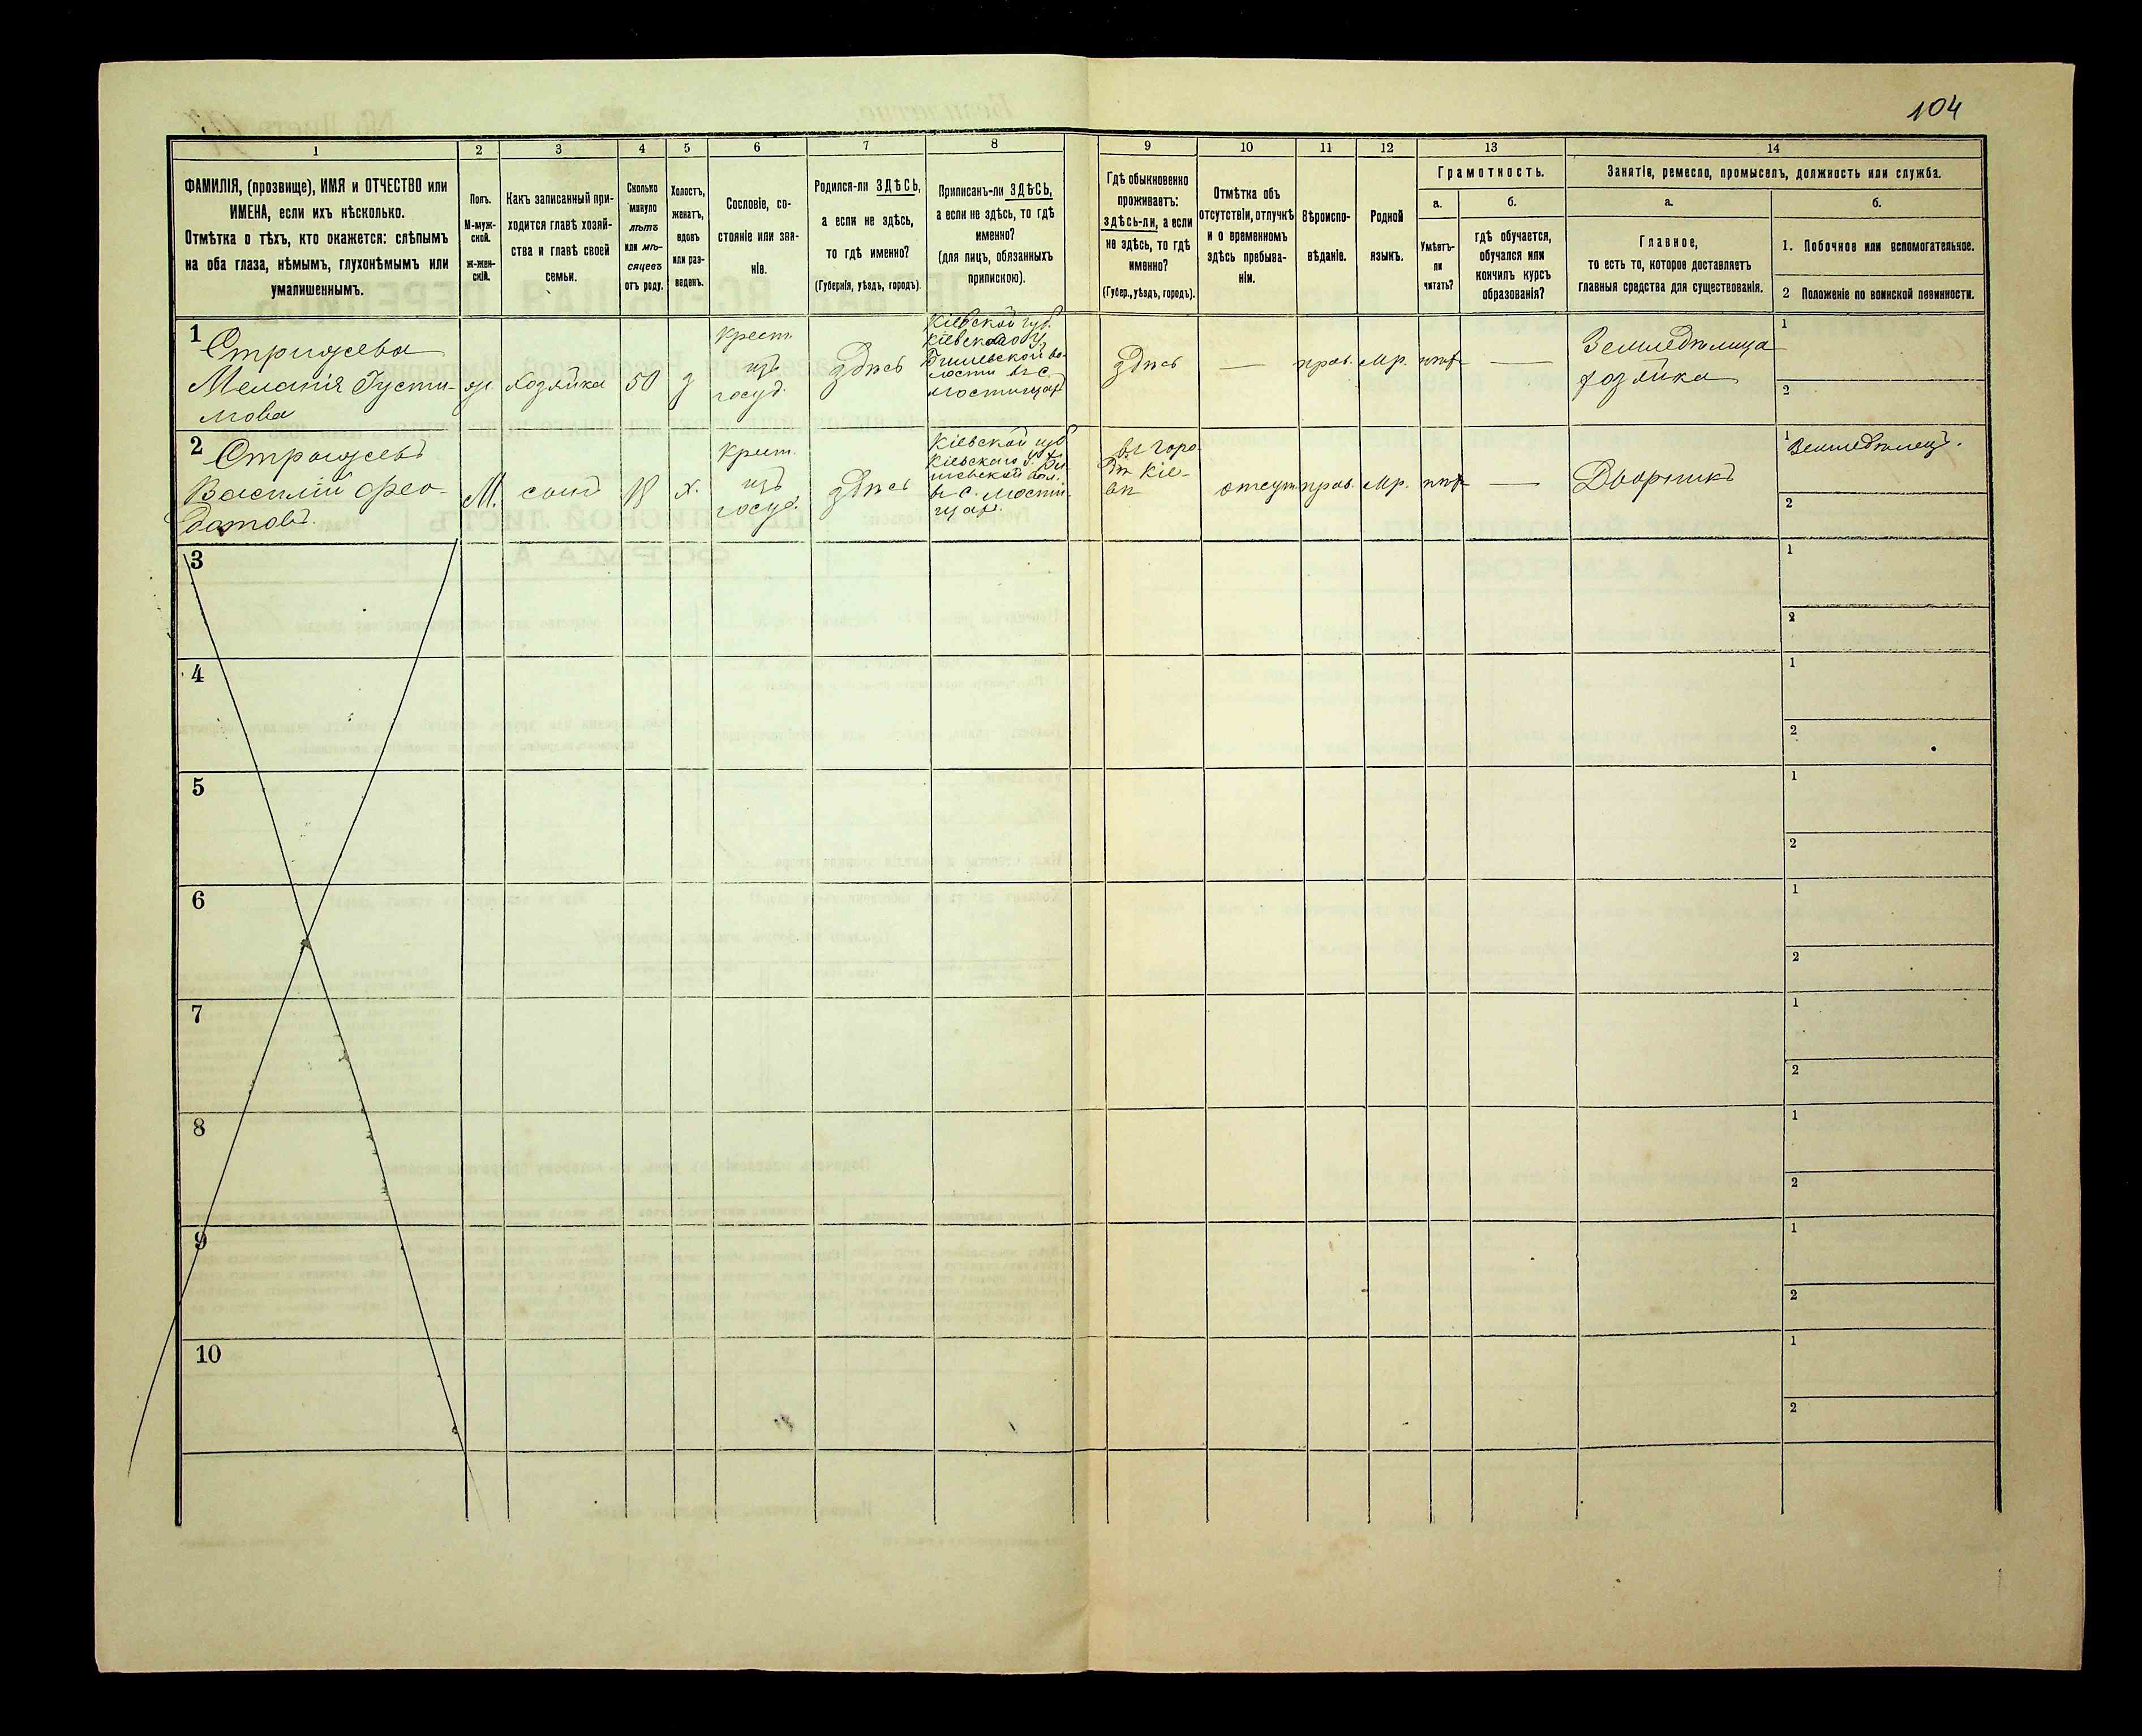 104
1
2
3
4
5
6
7
8
9
10
11
12
13
14
ФАМИЛІЯ, (прозвище), ИМЯ и ОТЧЕСТВО или
ИМЕНА, если ихъ нѣсколько.
Отмѣтка о тѣхъ, кто окажется: слѣпымъ
на оба глаза, нѣмымъ, глухонѣмымъ или
умалишеннымъ.
Полъ.
М-муж-
ской.
ж-жен-
скій.
Какъ записанный при-
ходится главѣ хозяй-
ства и главѣ своей
семьи.
Сколько
минуло
лѣтъ
или мѣ-
сяцевъ
отъ роду.
Холостъ,
женатъ,
вдовъ
или раз-
веденъ.
Сословіе, со-
стояніе или зва-
ніе.
Родился-ли ЗДѢСЬ,
а если не здѣсь,
то гдѣ именно?
(Губернія, уѣздъ, городъ).
Приписанъ-ли ЗДѢСЬ,
а если не здѣсь, то гдѣ
именно?
(для лицъ, обязанныхъ
припискою).
Гдѣ обыкновенно
проживаетъ:
здѣсь-ли, а если
не здѣсь, то гдѣ
именно?
(Губер., уѣздъ, городъ).
Отмѣтка объ
отсутствіи, отлучкѣ
и о временномъ
здѣсь пребыва-
ніи.
Вѣроиспо-
вѣданіе.
Родной
языкъ.
Грамотность.
а.
б.
Умѣетъ-
ли
читать?
гдѣ обучается,
обучался или
кончилъ курсъ
образованія?
Занятіе, ремесло, промыселъ, должность или служба.
а.
б.
Главное,
то есть то, которое доставляетъ
главныя средства для существованія.
1. Побочное или вспомогательное.
2 Положеніе по воинской повинности.
1
Стрижева
Меланія Густи-
мова
ж.
хозяйка
50
крест.
изъ
госуд.
здѣсь
Кіевской губ.
Кіевскаго у.
лости въ с.
Мостищах
здѣсь
—
прав.
Мр.
нѣт
—
Земледѣлица
хозяйка
1
2
2
Стрижевъ
Василій Фео-
датовъ.
М.
сынъ
18
х.
крест.
изъ
госуд.
здѣсь
Кіевской губ
Кіевскаго у. Би-
шевской вол.
въ с. Мости-
щах.
въ горо-
дѣ Кіе-
вѣ
отсут
прав.
Мр.
нѣт
—
Дворникъ
1
Земледѣлецъ.
2
3
1
2
4
1
2
5
1
2
6
1
2
7
1
2
8
1
2
9
1
2
10
1
2